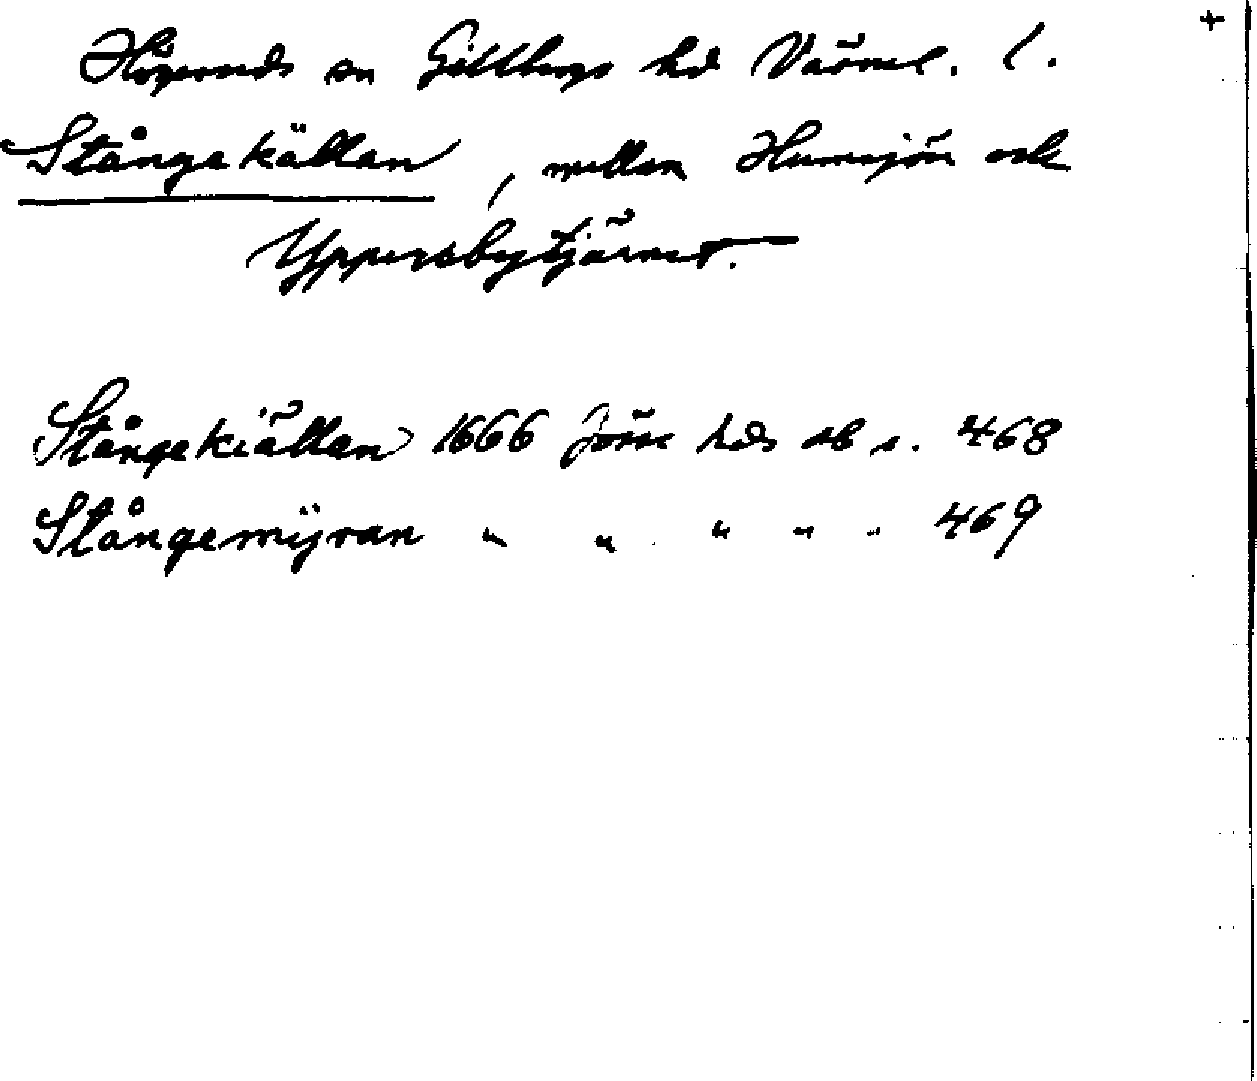 Högerud sn Gillbergs hd Värml. l.
Stångekällan, mellan Humsjön och
Yppersbytjärnet.
Stångekiällan 1666 Jösse hds db s. 468
Stångemÿran " " " " " 469